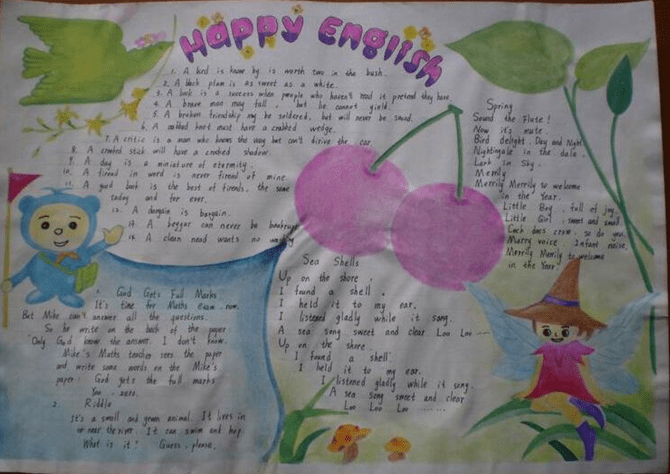 Happy English
1. A bird is know by is worth two in the bush.
2. A black plum is as sweet as a white.
3. A book is a success when people who haven't read it pretend they have.
4. A brave man may fall, but he cannot yield.
5. A broken friendship may be soldered, but will never be sound.
6. A crabbed knot must have a crabbed wedge.
7. A critic is a man who knows the way but can't drive the car.
8. A crooked stick will have a crooked shadow.
9. A day is a miniature of eternity.
10. A friend in word is never friend of mine.
11. A good book is the best of friends, the same
today and for ever.
12. A bargain is bargain.
13. A beggar can never be bankrupt
14. A clean hand wants no washing
1. God Gets Full Marks
It's time for Maths exam now.
But Mike can't answer all the questions.
So he write on the back of the paper
"Only God know the answer. I don't know.
Mike's Maths teacher sees the paper
and write some words on the Mike's
paper: God gets the full marks
You, zero.
2. Riddle
It's a small and green animal. It lives in
or near the river. It can swim and hop.
What is it? Guess, please.
Sea Shells
Up on the shore.
I found a shell.
I held it to my ear.
I listened gladly while it song.
A sea song sweet and clear Loo Loo ---
Up on the shore.
I found a shell
I held it to my ear.
I listened gladly while it song.
A sea song sweet and clear
Loo Loo Loo .......
Spring
Sound the Flute!
Now it's mute.
Bird delight. Day and Night
Nightingale in the dale.
Lark in Sky.
Merrily
Merrily Merrily to welcome
in the Year.
Little Boy, full of joy.
Little Girl sweet and small
Cock does crow, so do you.
Marry voice, Infant noise.
Merrily Merrily to welcome
in the Year.